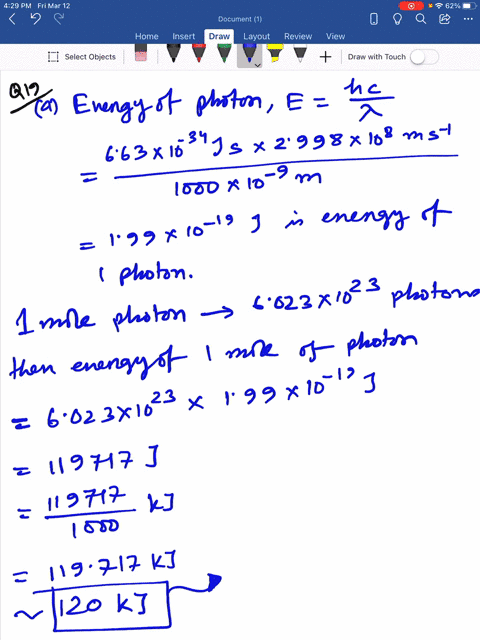 4:29 PM Fri Mar 12
62%
Document (1)
Home Insert Draw Layout Review View
Select Objects
Draw with Touch
Q19
(a) Energy of photon, E = hc/λ
= 6.63 × 10^-34 J s × 2.998 × 10^8 m s^-1 / 1000 × 10^-9 m
= 1.99 × 10^-19 J is energy of
1 photon.
1 mole photon → 6.023 × 10^23 photons
then energy of 1 mole of photon
= 6.023 × 10^23 × 1.99 × 10^-19 J
= 119717 J
= 119717/1000 kJ
= 119.717 kJ
~ 120 kJ